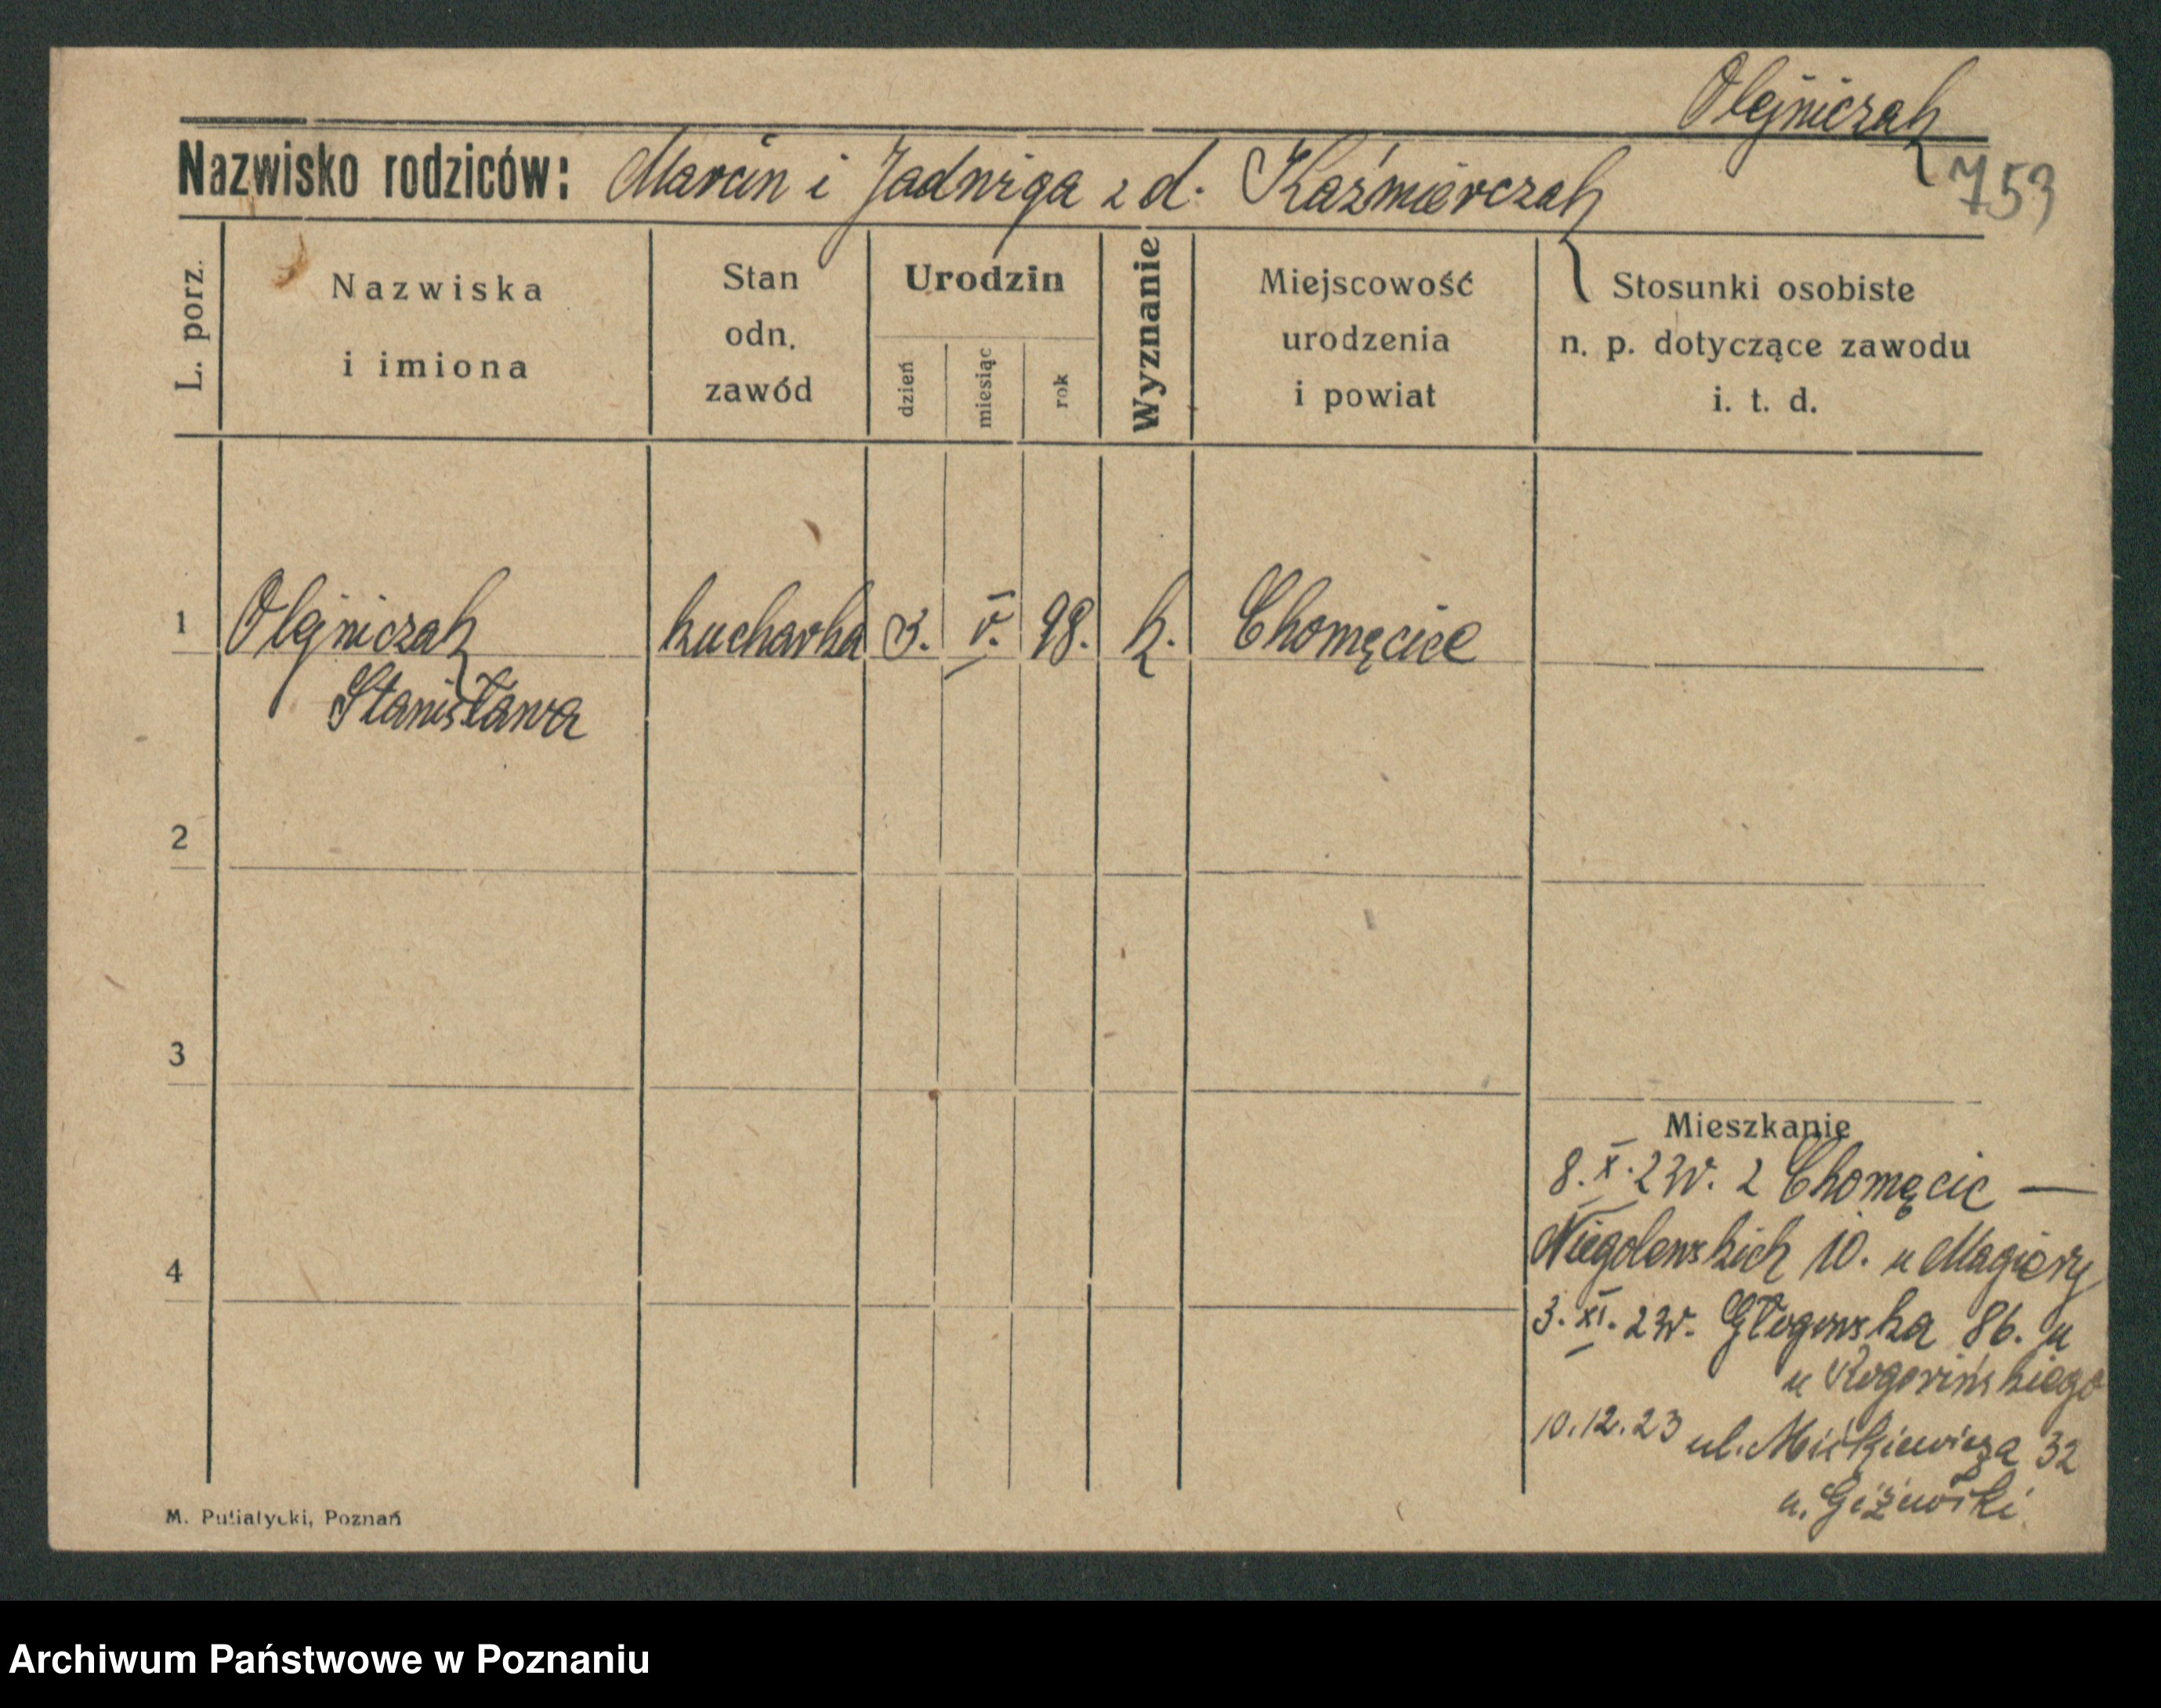 Olejniczak
Nazwisko rodziców: Marcin i Jadwiga z d. Kaźmierczak
753
L. porz.
Nazwiska
i imiona
Stan
odn.
zawód
Urodzin
dzień
miesiąc
rok
Wyznanie
Miejscowość
urodzenia
i powiat
Stosunki osobiste
n. p. dotyczące zawodu
i. t. d.
1 Olejniczak kucharka 3. V. 98. k. Chomęcice
Stanisława
2
3
Mieszkanie
8. X. 23r. z Chomęcic —
Niegolewskich 10. u Magiery
4
3. XI. 23r. Głogowska 86. u
u
10.12.23 ul. Mickiewicza 32
u. Giżewski
M. Putiatycki, Poznań
Archiwum Państwowe w Poznaniu